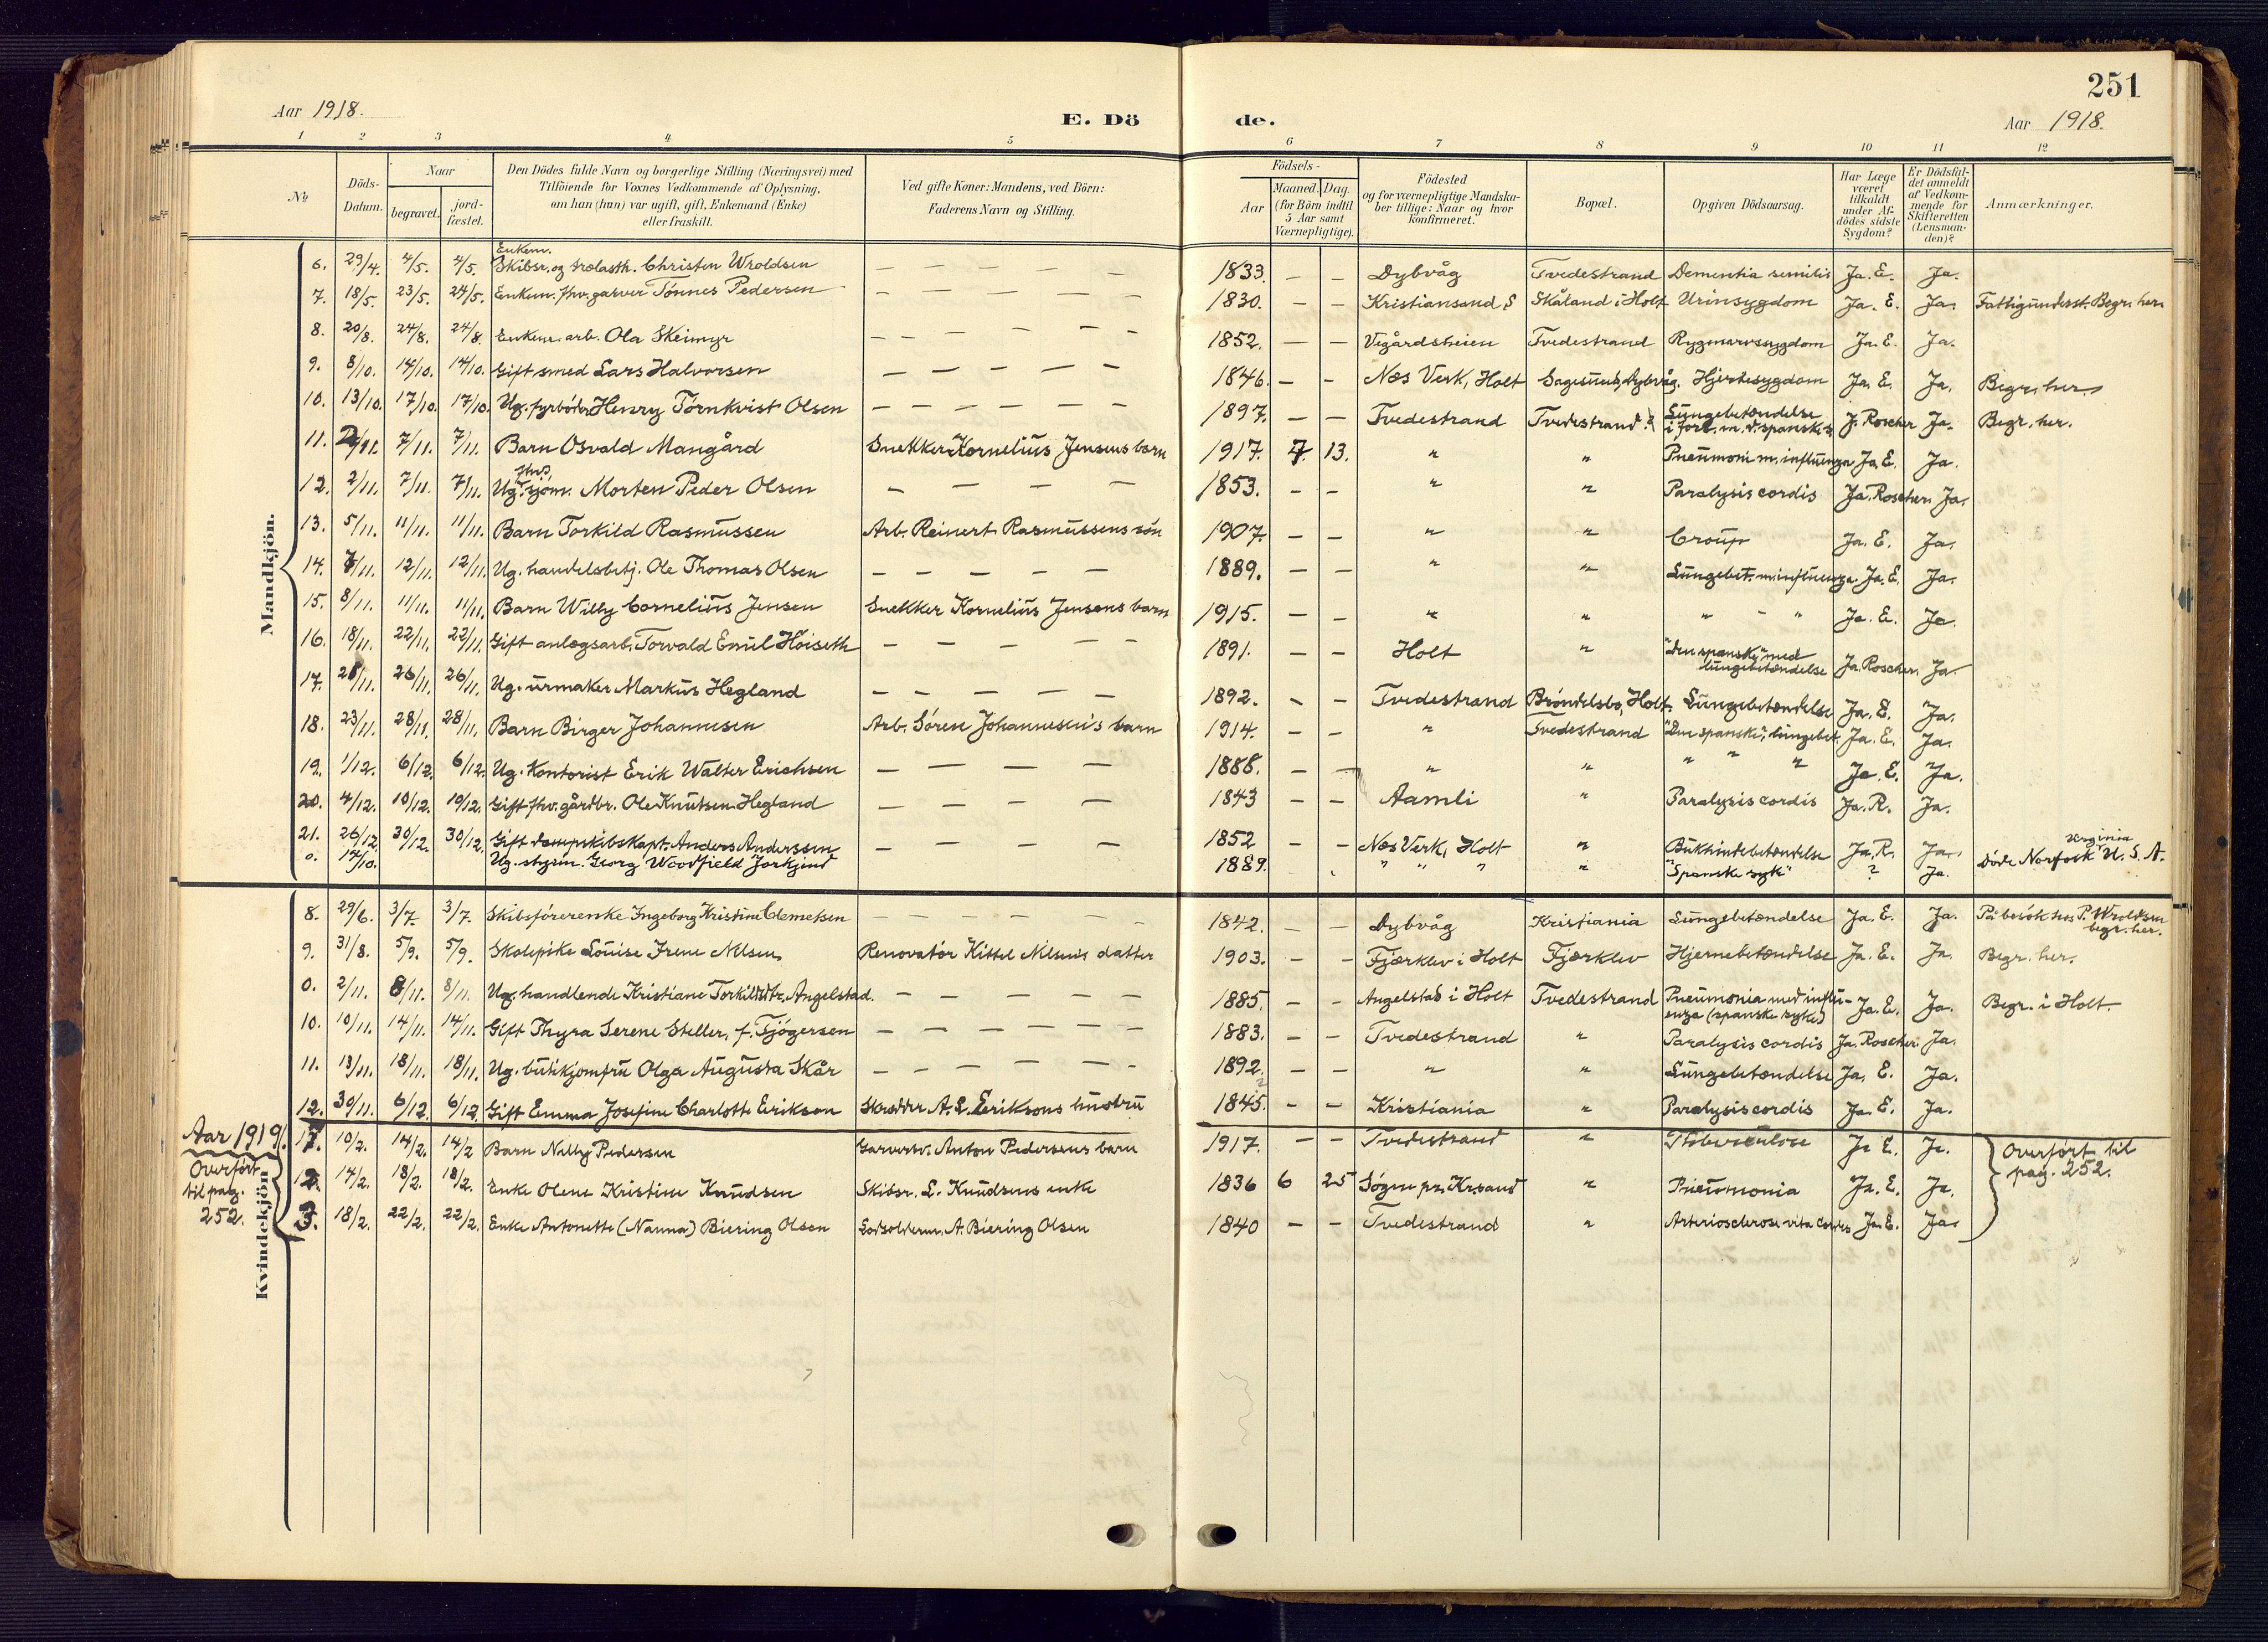 251
Aar 1918.
E. Dö
de.
Aar 1918.
1 2 3 4 5 6 7 8 9 10 11 12
No
Döds-Datum.
Naar
begravet.
jord-fæstet.
Den Dödes fulde Navn og borgerlige Stilling (Næringsvei) med
Tilföiende for Voxnes Vedkommende af Oplysning,
om han (hun) var ugift, gift, Enkemand (Enke)
eller fraskilt.
Ved gifte Koner: Mandens, ved Börn:
Faderens Navn og Stilling.
Födsels-
Aar
Maaned. Dag.
(for Börn indtil
5 Aar samt
Værnepligtige).
Födested
og for værnepligtige Mandska-
ber tillige: Naar og hvor
konfirmeret.
Bopæl.
Opgiven Dödsaarsag.
Har Læge
været
tilkaldt
under Af-
dödes sidste
Sygdom?
Er Dödsfal-
det anmeldt
af Vedkom-
mende for
Skifteretten
(Lensman-
den)?
Anmærkninger.
Mandkjön.
6. 29/4. 4/5. 4/5. Enkem. Skibsr. og trælasth. Christen Wroldsen — — — — — 1833. — — Dybvåg Tvedestrand Dementia senilis Ja. E. Ja.
7. 18/5. 23/5. 24/5. Enkem. fhv. garver Tönnes Pedersen — — — — — 1830. — — Kristiansand S Skåland i Holt Urinsygdom Ja. E. Ja. Fattigunderst. Begr. her.
8. 20/8. 24/8. 24/8. Enkem. arb. Ola Skeimyr — — — — — 1852. — — Vegårdsheien Tvedestrand Rygmarvssygdom Ja. E. Ja.
9. 8/10. 14/10. 14/10. Gift smed Lars Halvorsen — — — — — 1846. — — Næs Verk, Holt Sagesund, Dybvåg. Hjertesygdom Ja. E. Ja. Begr. her.
10. 13/10. 17/10. 17/10. Ug. fyrböder Henry Törnkvist Olsen — — — — — 1897. — — Tvedestrand Tvedestrand. Lungebetændelse i forb. m. d. spanske s. J. Roscher Ja. Begr. her.
11. 2/11. 7/11. 7/11. Barn Osvald Mangård Snekker Kornelius Jensens barn 1917. 7. 13. " " Pneumoni m. influenza Ja. E. Ja.
12. 2/11. 7/11. 7/11. Ug. fhv. sjöm. Morten Peder Olsen — — — — 1853. — — " " Paralysis cordis Ja. Roscher. Ja.
13. 5/11. 11/11. 11/11. Barn Torkild Rasmussen Arb. Reinert Rasmussens sön 1907. — — " " Croup Ja. E. Ja.
14. 7/11. 12/11. 12/11. Ug. handelsbetj. Ole Thomas Olsen — — — — — 1889. — — " " Lungebet. m. influenza. Ja. E. Ja.
15. 8/11. 11/11. 11/11. Barn Willy Cornelius Jensen Snekker Kornelius Jensens barn 1915. — — " " " - " Ja. E. Ja.
16. 18/11. 22/11. 22/11. Gift anlægsarb. Torvald Emil Höiseth — — — — 1891. — — Holt " "Den spanske" med lungebetændelse Ja. Roscher. Ja.
17. 21/11. 26/11. 26/11. Ug. urmaker Markus Hegland — — — — — 1892. — — Tvedestrand Bröndelsbo, Holt. Lungebetændelse Ja. E. Ja.
18. 23/11. 28/11. 28/11. Barn Birger Johannesen Arb. Sören Johannesens barn 1914. — — " Tvedestrand "Den spanske", lungebet. Ja. E. Ja.
19. 1/12. 6/12. 6/12. Ug. Kontorist Erik Walter Erichsen — — — — 1888. — — " " " " " Ja. E. Ja.
20. 4/12. 10/12. 19/12. Gift fhv. gårdbr. Ole Knutsen Hegland — — — — 1843 — — Aamli " Paralysis cordis Ja. R. Ja.
21. 26/12. 30/12. 30/12. Gift dampskibskapt. Anders Anderssen — — — — 1852 — — Næs Verk, Holt " Bukhindebetændelse Ja. R. Ja.
0. 14/10. Ug. styrm. Georg Woodfield 1889. " " " " "Spanske syk" ? Ja. Döde Norfock Virginia U. S. A.
Kvindekjön
8. 29/6. 3/7. 3/7. Skibsförerenke Ingeborg Kristine Clemetsen — — — — — 1842. — — Dybvåg Kristiania Lungebetændelse Ja. E. Ja. På besök hos P. Wroldsen begr. her.
9. 31/8. 5/9. 5/9. Skolepike Louise Irene Nilsen Renovatör Kittel Nilsens datter 1903. — — Fjærklev i Holt Fjærklev Hjernebetændelse Ja. E. Ja. Begr. her.
0. 2/11. 8/11. 8/11. Ug. handlende Kristiane Torkildsdtr. Angelstad. — — — — — 1885. — — Angelstad i Holt Tvedestrand Pneumonia med influ- enza (spanske syke) Ja. E. Ja. Begr. i Holt.
10. 10/11. 14/11. 14/11. Gift Thyra Serene Steller, f. Tjögersen — — — — — 1883. — — Tvedestrand " Paralysis cordis Ja. Roscher. Ja.
11. 13/11. 18/11. 18/11. Ug. butikjomfru Olga Augusta Skår — — — — — 1892. — — " " Lungebetændelse Ja. E. Ja.
12. 30/11. 6/12. 6/12. Gift Emma Josefine Charlotte Erikson Skrædder A. L. Eriksons hustru 1845. — — Kristiania " Paralysis cordis Ja. E. Ja.
Aar 1919.
1. 10/2. 14/2. 14/2 Barn Nelly Pedersen Garversv. Anton Pedersens barn 1917. — — Tvedestrand " Tuberculose Ja E. Ja. Overfört til pag. 252.
Overfört til pag. 252.
2. 14/2. 18/2. 18/2. Enke Olene Kristine Knudsen Skibsr. L. Knudsens enke 1836 6 25 Sögne pr. Kr.sand " Pneumonia Ja. E. Ja.
3. 18/2. 22/2. 22/2. Enke Antonette (Nanna) Biering Olsen Lodsolderm. A. Biering Olsen 1840 — — Tvedestrand " Arteriosclerose Ja. E. Ja.